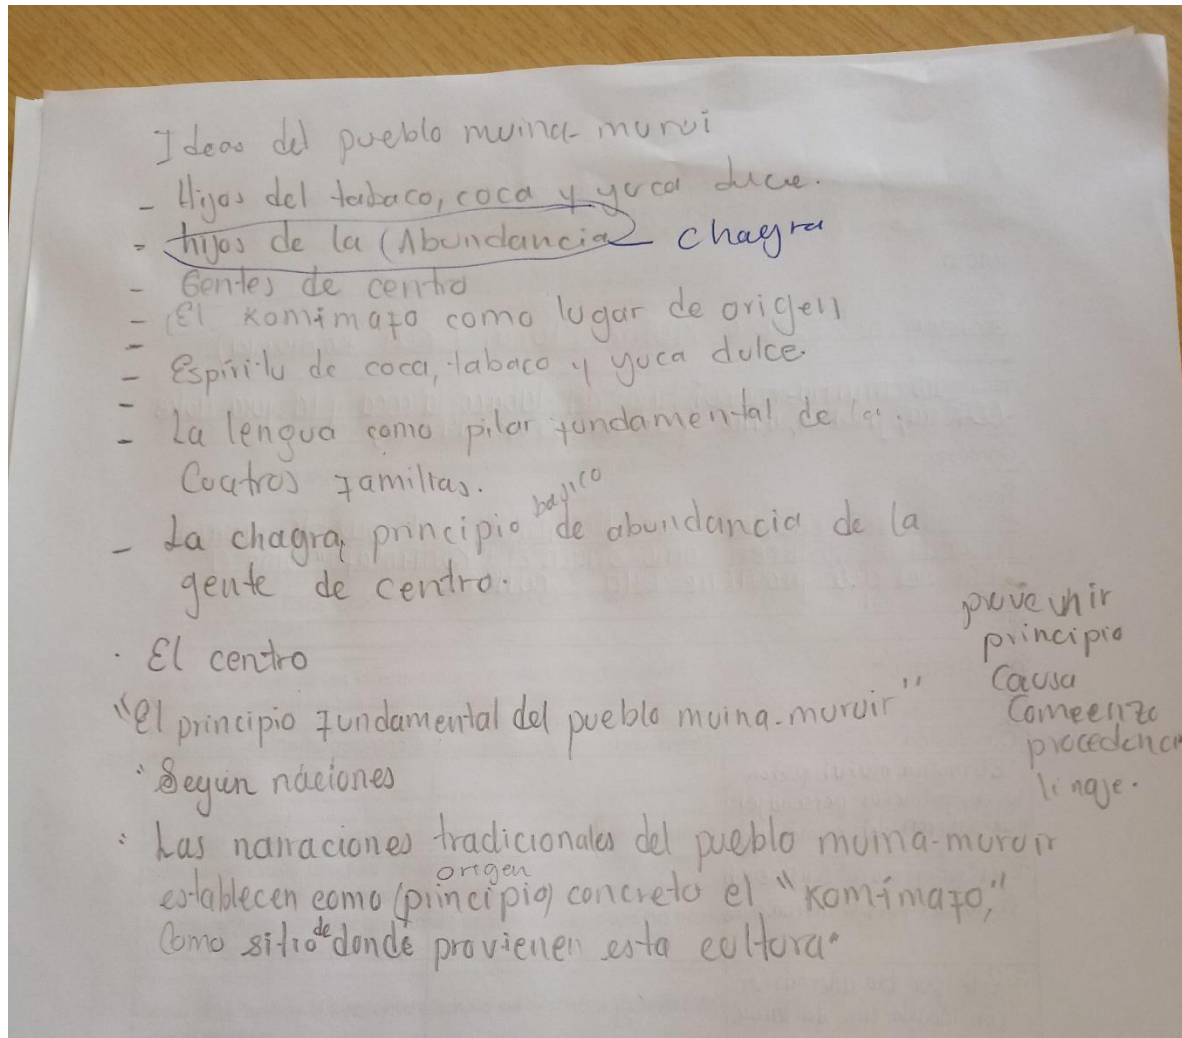 Ideas del pueblo muina-murui
- Hijos del tabaco, coca y yuca duce.
- hijos de la (Abundancia chagra
- Gentes de centro
- El komɨmafo como lugar de origen
-
- Espíritu de coca, tabaco y yuca dulce.
-
- La lengua como pilar fundamental de la.
Cuatros familias.
basico
- La chagra, principio de abundancia de la
gente de centro.
· El centro
"El principio fundamental del pueblo muina-muruir"
· Según naciones
: Las narraciones tradicionales del pueblo muina-muruir
origen
establecen como (principio) concreto el "komɨmafo,"
Como sitio de donde provienen esta cultura.
provenir
principio
Causa
Comeenzo
procedencia
linaje.